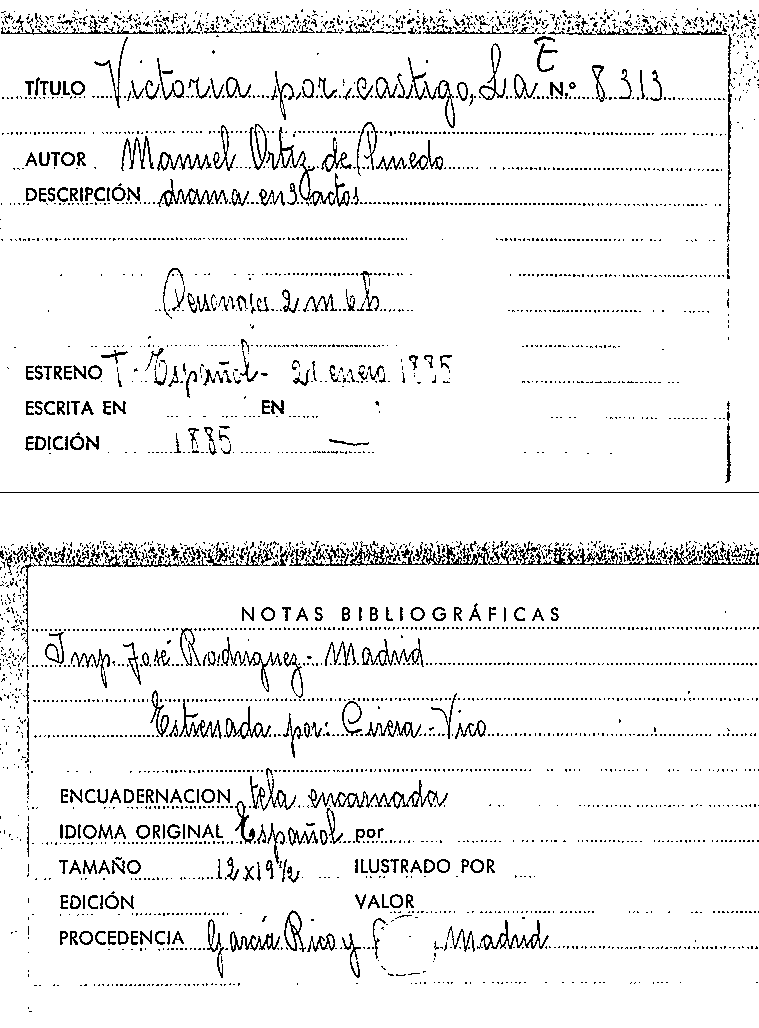 E
TÍTULO Victoria por castigo, La N.º 8313
AUTOR Manuel Ortiz de Pinedo
DESCRIPCIÓN drama en 3 actos
Personajes 2 m 6 h
ESTRENO T. Español - 21 enero 1885
ESCRITA EN EN
EDICIÓN 1885 —
NOTAS BIBLIOGRÁFICAS
Imp. José Rodriguez - Madrid
Estrenada por: Cirera - Vico
ENCUADERNACION tela encarnada
IDIOMA ORIGINAL Español por
TAMAÑO 12 x 19 ½ ILUSTRADO POR
EDICIÓN VALOR
PROCEDENCIA García Rico y Madrid